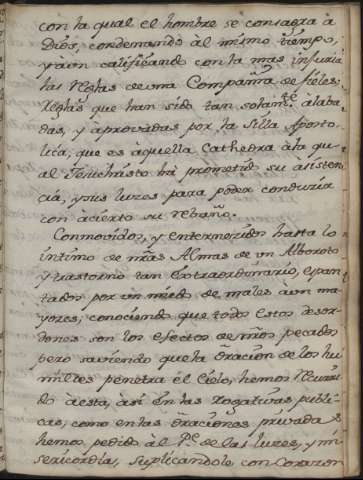 con la qual el hombre se consagra à
Dios, condenando àl mismo tiempo,
y aùn calificando con la mas injuria
las Reglas de una Compañia de fieles;
Reglas que han sido tan solam.te àlaba-
das, y aprovadas por la Silla Aposto-
lica, que es àquella Cathedra àla qu-
al Jesuchristo hà prometido su àsisten
cia, y sus luzes para poder conducir
con acierto su rebaño.
Conmovidos, y enternezidos hasta lo
intimo de ñras Almas de un Alboroto
y trastorno tan extraordinario, espan-
tados por un miedo de males àun ma
yores; conociendo que todos estos desor-
denes son los efectos de ñros pecados
pero saviendo que la òracion de los hu
mildes penetra el Cielo, hemos recurri
do àesta, àsi en las rogativas publi-
cas, como en las òraciones privadas
hemos pedido àl P.e de las luzes, y mi
sericordia, suplicandole con Corazon